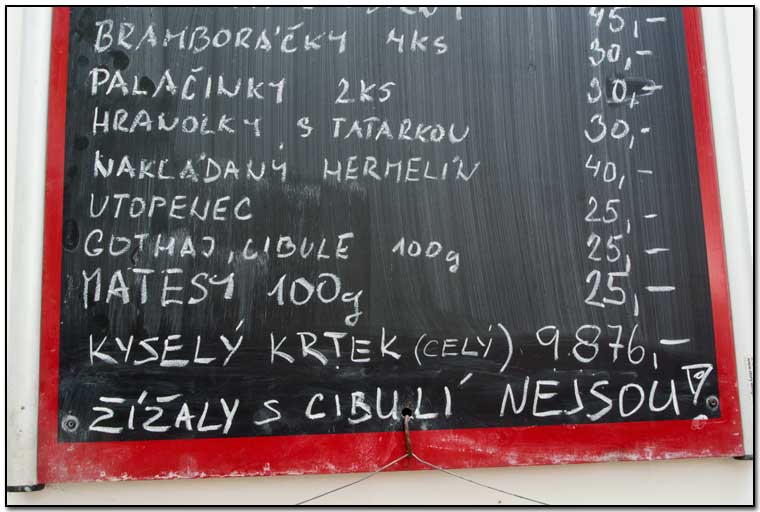 45,-
BRAMBORÁČKY 4KS 30,-
PALAČINKY 2KS 30,-
HRANOLKY S TATARKOU 30,-
NAKLÁDANÝ HERMELÍN 40,-
UTOPENEC 25,-
GOTHAJ, CIBULE 100g 25,-
MATESY 100g 25,-
KYSELÝ KRTEK (CELÝ) 9.876,-
ŽÍŽALY S CIBULÍ NEJSOU!